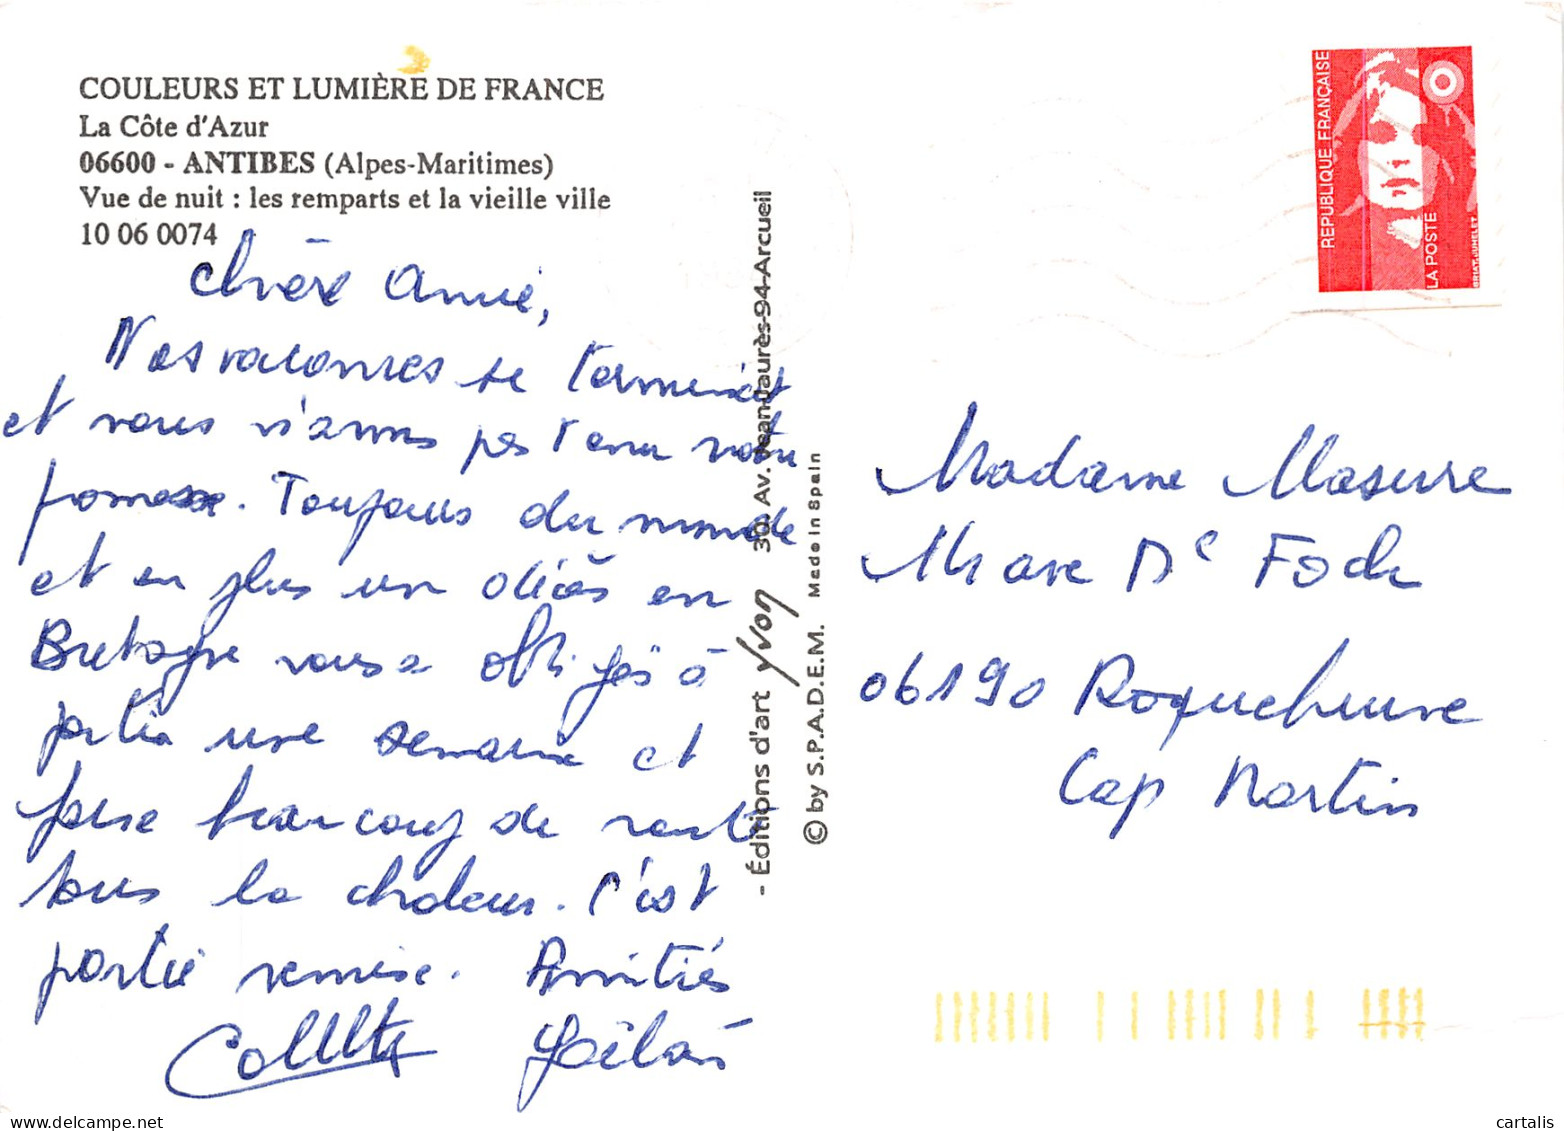 COULEURS ET LUMIÈRE DE FRANCE
La Côte d'Azur
06600 - ANTIBES (Alpes-Maritimes)
Vue de nuit : les remparts et la vieille ville
10 06 0074
Chère Amie,
Nos vacances se terminent
et nous n'avons pas tenu notre
promesse. Toujours du monde
et en plus un décès en
Bretagne nous a obligés à
partir une semaine et
beaucoup de route
sous la chaleur. C'est
partie remise. Amitiés
Colette
- Éditions d'art Yvon 30, Av. Jean-Jaurès-94-Arcueil
© by S.P.A.D.E.M. Made in Spain
REPUBLIQUE FRANÇAISE
LA POSTE
BRIAT-JUMELET
Madame Masure
Mare Mc Foch
06190 Roquebrune
Cap Martin
cartalis